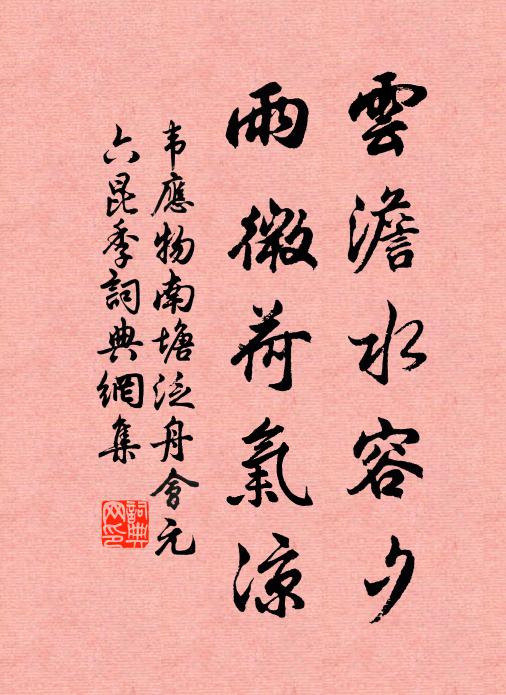 雲澹水容夕
雨微荷氣涼
韦應物南塘泛舟會元
六昆季詞典網集
詞典网印